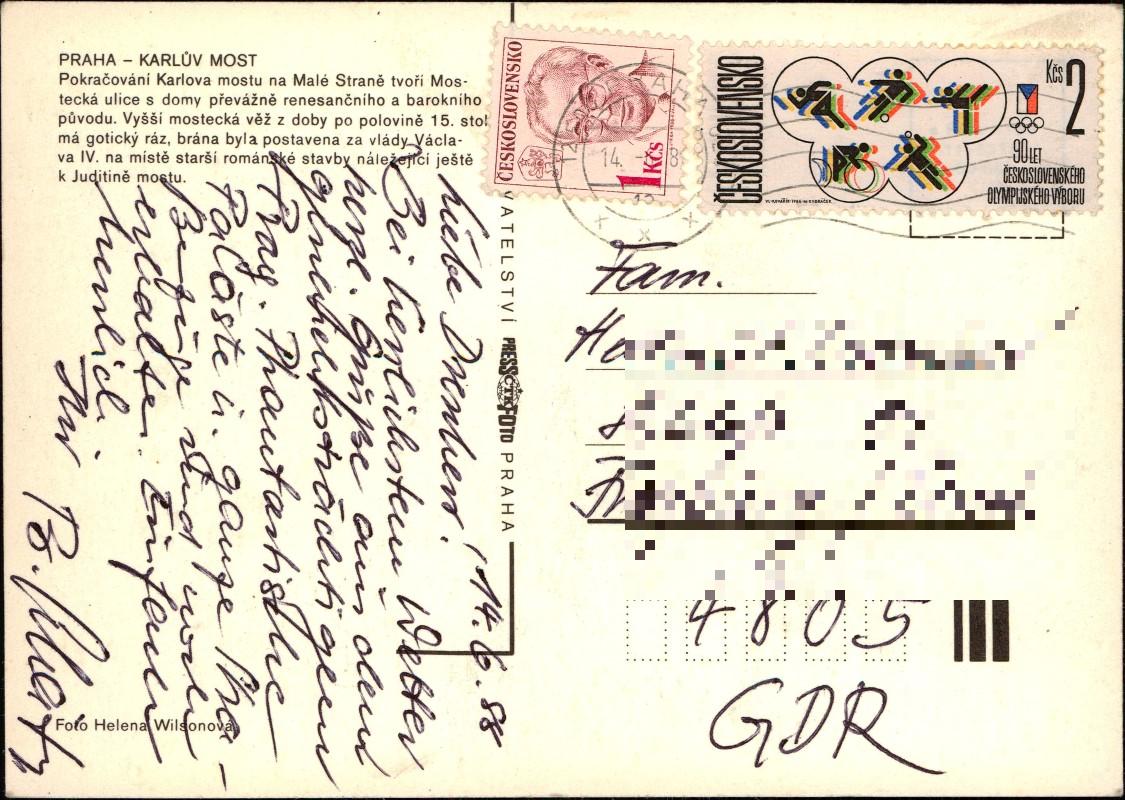 PRAHA – KARLŮV MOST
Pokračování Karlova mostu na Malé Straně tvoří Mos-
tecká ulice s domy převážně renesančního a barokního
původu. Vyšší mostecká věž z doby po polovině 15. stol.
má gotický ráz, brána byla postavena za vlády Václa-
va IV. na místě starší románské stavby náležející ještě
k Juditině mostu.
Foto Helena Wilsonová
VATELSTVÍ PRESSFOTO PRAHA
ČTK
ČESKOSLOVENSKO
1 Kčs
ČESKOSLOVENSKO
Kčs 2
90 LET
ČESKOSLOVENSKÉHO
OLYMPIJSKÉHO VÝBORU
14.
14.6.88
Liebe
Bei herrlichstem Wetter
herzl. Grüße aus dem
prächtigem
Prag. Phantastische
Paläste u. ganze
sind
erhalten. Einfach
herrlich.
Ihr
Fam.
4805
GDR